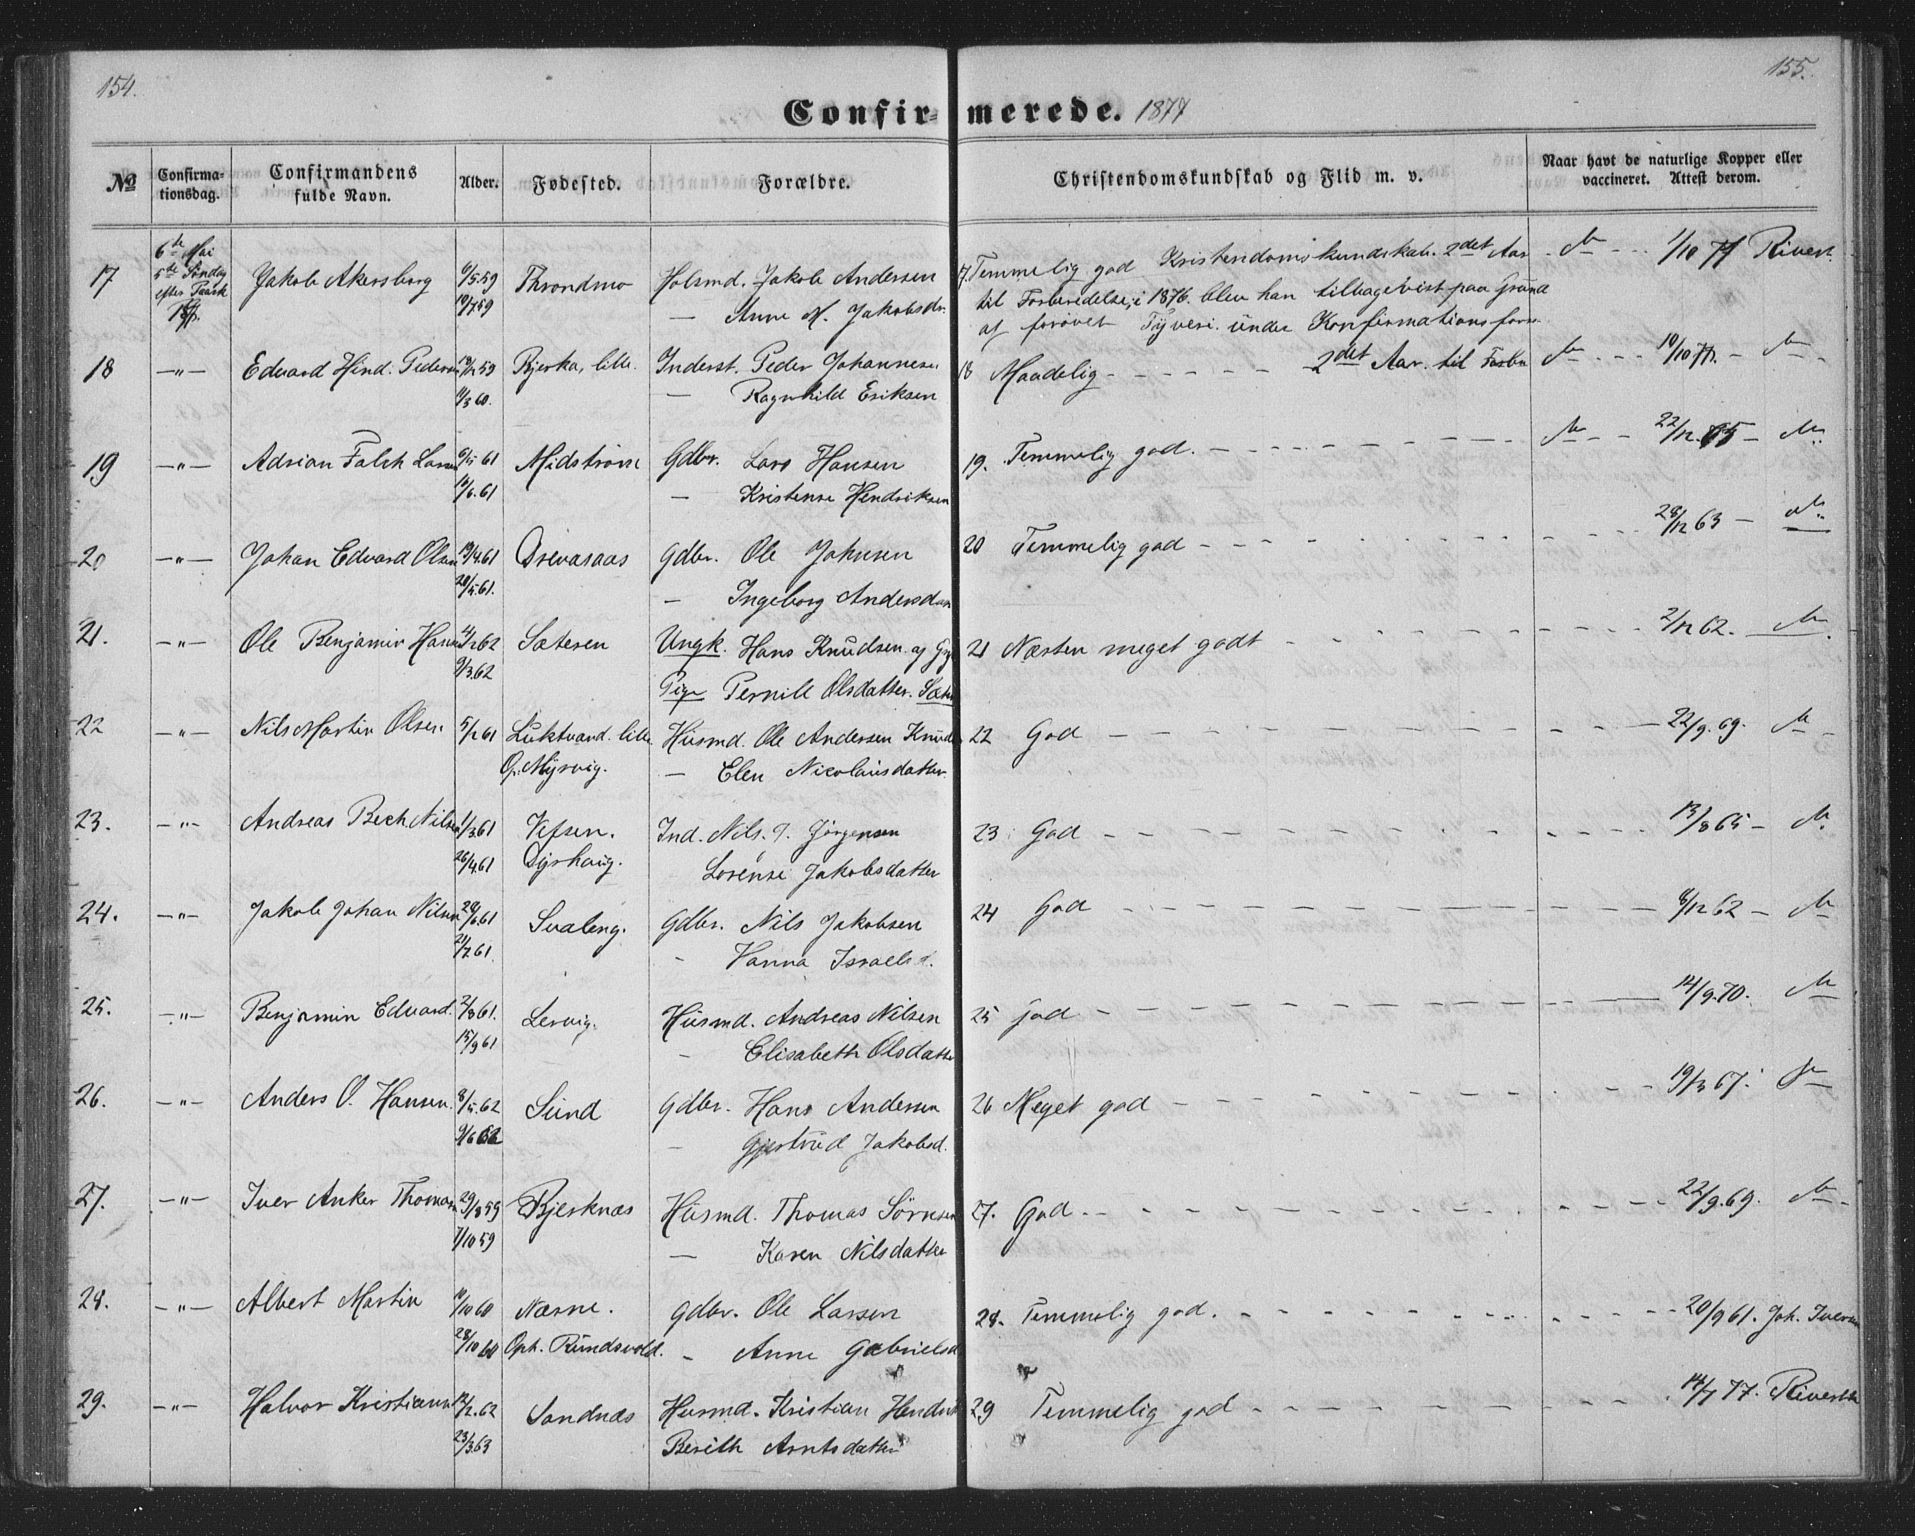 154.
155.
Confirmerede. 1877
No
Confirmationsdag.
Confirmandens fulde Navn.
Alder.
Fødested.
Forældre.
Christendomskundskab og Flid m. v.
Naar havt de naturlige Kopper eller vaccineret. Attest derom.
17 6te Mai 5te Søndag efter Paask Jakob Akersborg 6/5.59 Throndmo Holsmd. Jakob Andersen 17. Temmelig god Kristendomskundskab. 2det Aar 1/10 77 Rivert.
10/7.59 — Anne M. Jakobsdr. til Forberedelse; i 1876 blev han tilbagevist paa Grund
af forøvet Tyveri under Konfirmationsforb.
18 —"— Edvard Hind. Pedersen 19/12 59 Bjerka, lille Inderst. Peder Johannesen 18 Maadelig - - - 2det Aar til Forbr 10/10 77. —
11/3 60. — Ragnhild Eriksen
19 —"— Adrian Falch Larsen 6/5 61 Midstrøm Gdbr. Lars Hansen 19. Temmelig god. 22/12.65 —
16/6.61 — Kristense Hendriksen
20 —"— Johan Edvard Olsen 19/4.61 Drevasaas Gdbr. Ole Johnsen 20 Temmelig god 28/12 63 —
20/5.61. — Ingeborg Andersdatr
21. —"— Ole Benjamin Hansen 4/2 62 Sæteren Ungk. Hans Knudsen og 21 Næsten meget godt 2/12 62.
9/3.62 Pige Pernill Olsdatter. Sæter
22 —"— Nils Martin Olsen 5/2 61 Luktvand. lille Husmd. Ole Andersen Knud 22 God 22/9.69.
Op. Myrvig. — Elen Nicolaisdatter
23. —"— Andreas Bech Nilsen 1/3 61 Vefsen. Ind. Nils. J. Jørgensen 23 God 13/8 65 —
26/4.61 Dyrhaug. Lorense Jakobsdatter
24. —"— Jakob Johan Nilsen 20/6.61 Svaleng. Gdbr. Nils Jakobsen 24 God 8/12 62 —
21/7.61. — Hanna Israelsd.
25. —"— Benjamin Edvard. 2/8 61. Lervig. Husmd. Andreas Nilsen 25 God 14/9.70.
15/9 61 — Elisabeth Olsdatter
26. —"— Anders O. Hansen. 8/5.62 Sund Gdbr. Hans Andersen 26 Meget god 19/3 67.
9/6 62 — Gjertrud Jakobsd.
27. —"— Iver Anker Thomasen 29/8 59 Bjerknæs Husmd. Thomas Sørensen 27. God 22/9.69.
7/10 59 — Karen Nilsdatter
28. —"— Albert Martin 1/10 60 Næsne. Gdbr. Ole Larsen 28. Temmelig god. 20/9 61. Joh. Iversen
28/10 60 Oph. Rundsvold. — Anne Gabrielsd
29. —"— Halvor Kristiansen 12/2.62 Sandnæs Husmd. Kristian Hendrik 29 Temmelig god 14/1 77. Rivertz
23/3.63 Berith Arntsdatter